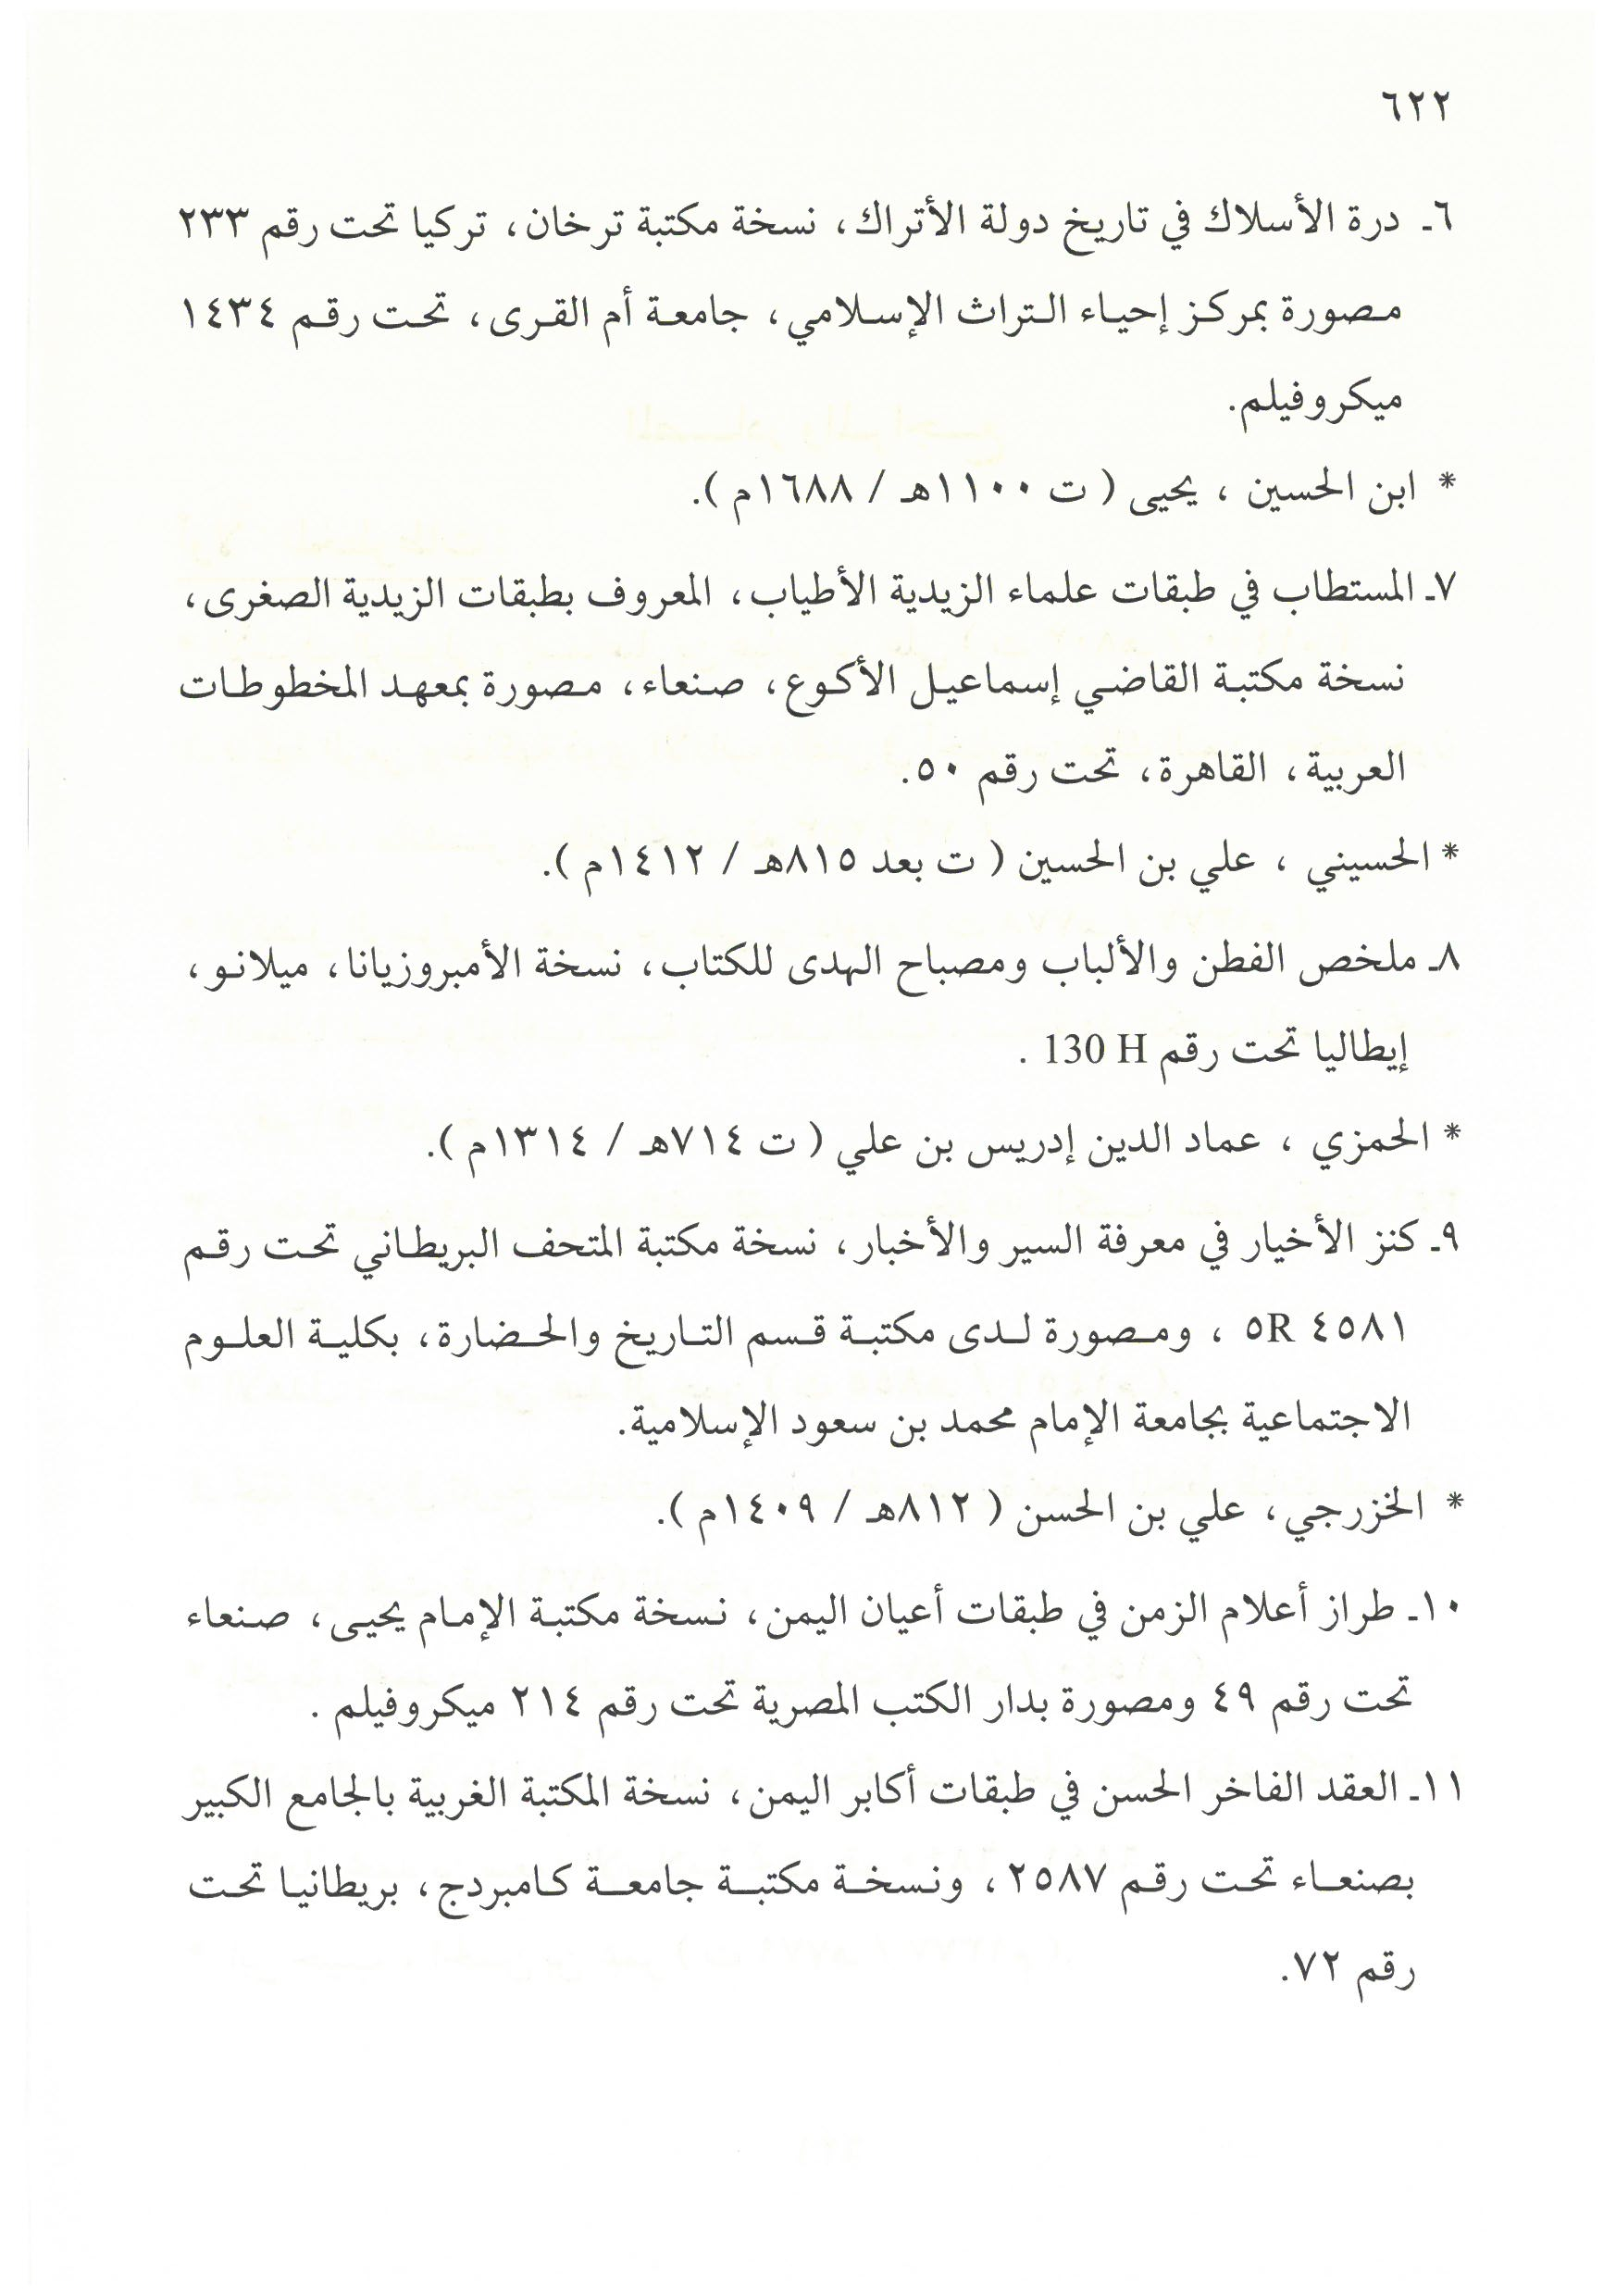 ٦٢٢
٦ـ درة الأسلاك في تاريخ دولة الأتراك، نسخة مكتبة ترخان، تركيا تحت رقم ٢٣٣
مصورة بمركز إحياء التراث الإسلامي، جامعة أم القرى، تحت رقم ١٤٣٤
ميكروفيلم.
* ابن الحسين ، يحيى ( ت ١١٠٠هـ / ١٦٨٨م ).
٧ـ المستطاب في طبقات علماء الزيدية الأطياب، المعروف بطبقات الزيدية الصغرى،
نسخة مكتبة القاضي إسماعيل الأكوع، صنعاء، مصورة بمعهد المخطوطات
العربية، القاهرة، تحت رقم ٥٠.
* الحسيني ، علي بن الحسين ( ت بعد ٨١٥هـ / ١٤١٢م ).
٨ـ ملخص الفطن والألباب ومصباح الهدى للكتاب، نسخة الأمبروزيانا، ميلانو،
إيطاليا تحت رقم 130 H .
* الحمزي ، عماد الدين إدريس بن علي ( ت ٧١٤هـ / ١٣١٤م ).
٩ـ كنز الأخيار في معرفة السير والأخبار، نسخة مكتبة المتحف البريطاني تحت رقم
٤٥٨١ ٥R ، ومصورة لدى مكتبة قسم التاريخ والحضارة، بكلية العلوم
الاجتماعية بجامعة الإمام محمد بن سعود الإسلامية.
* الخزرجي، علي بن الحسن ( ٨١٢هـ / ١٤٠٩م ).
١٠ـ طراز أعلام الزمن في طبقات أعيان اليمن، نسخة مكتبة الإمام يحيى، صنعاء
تحت رقم ٤٩ ومصورة بدار الكتب المصرية تحت رقم ٢١٤ ميكروفيلم .
١١ـ العقد الفاخر الحسن في طبقات أكابر اليمن، نسخة المكتبة الغربية بالجامع الكبير
بصنعاء تحت رقم ٢٥٨٧ ، ونسخة مكتبة جامعة كامبردج، بريطانيا تحت
رقم ٧٢.